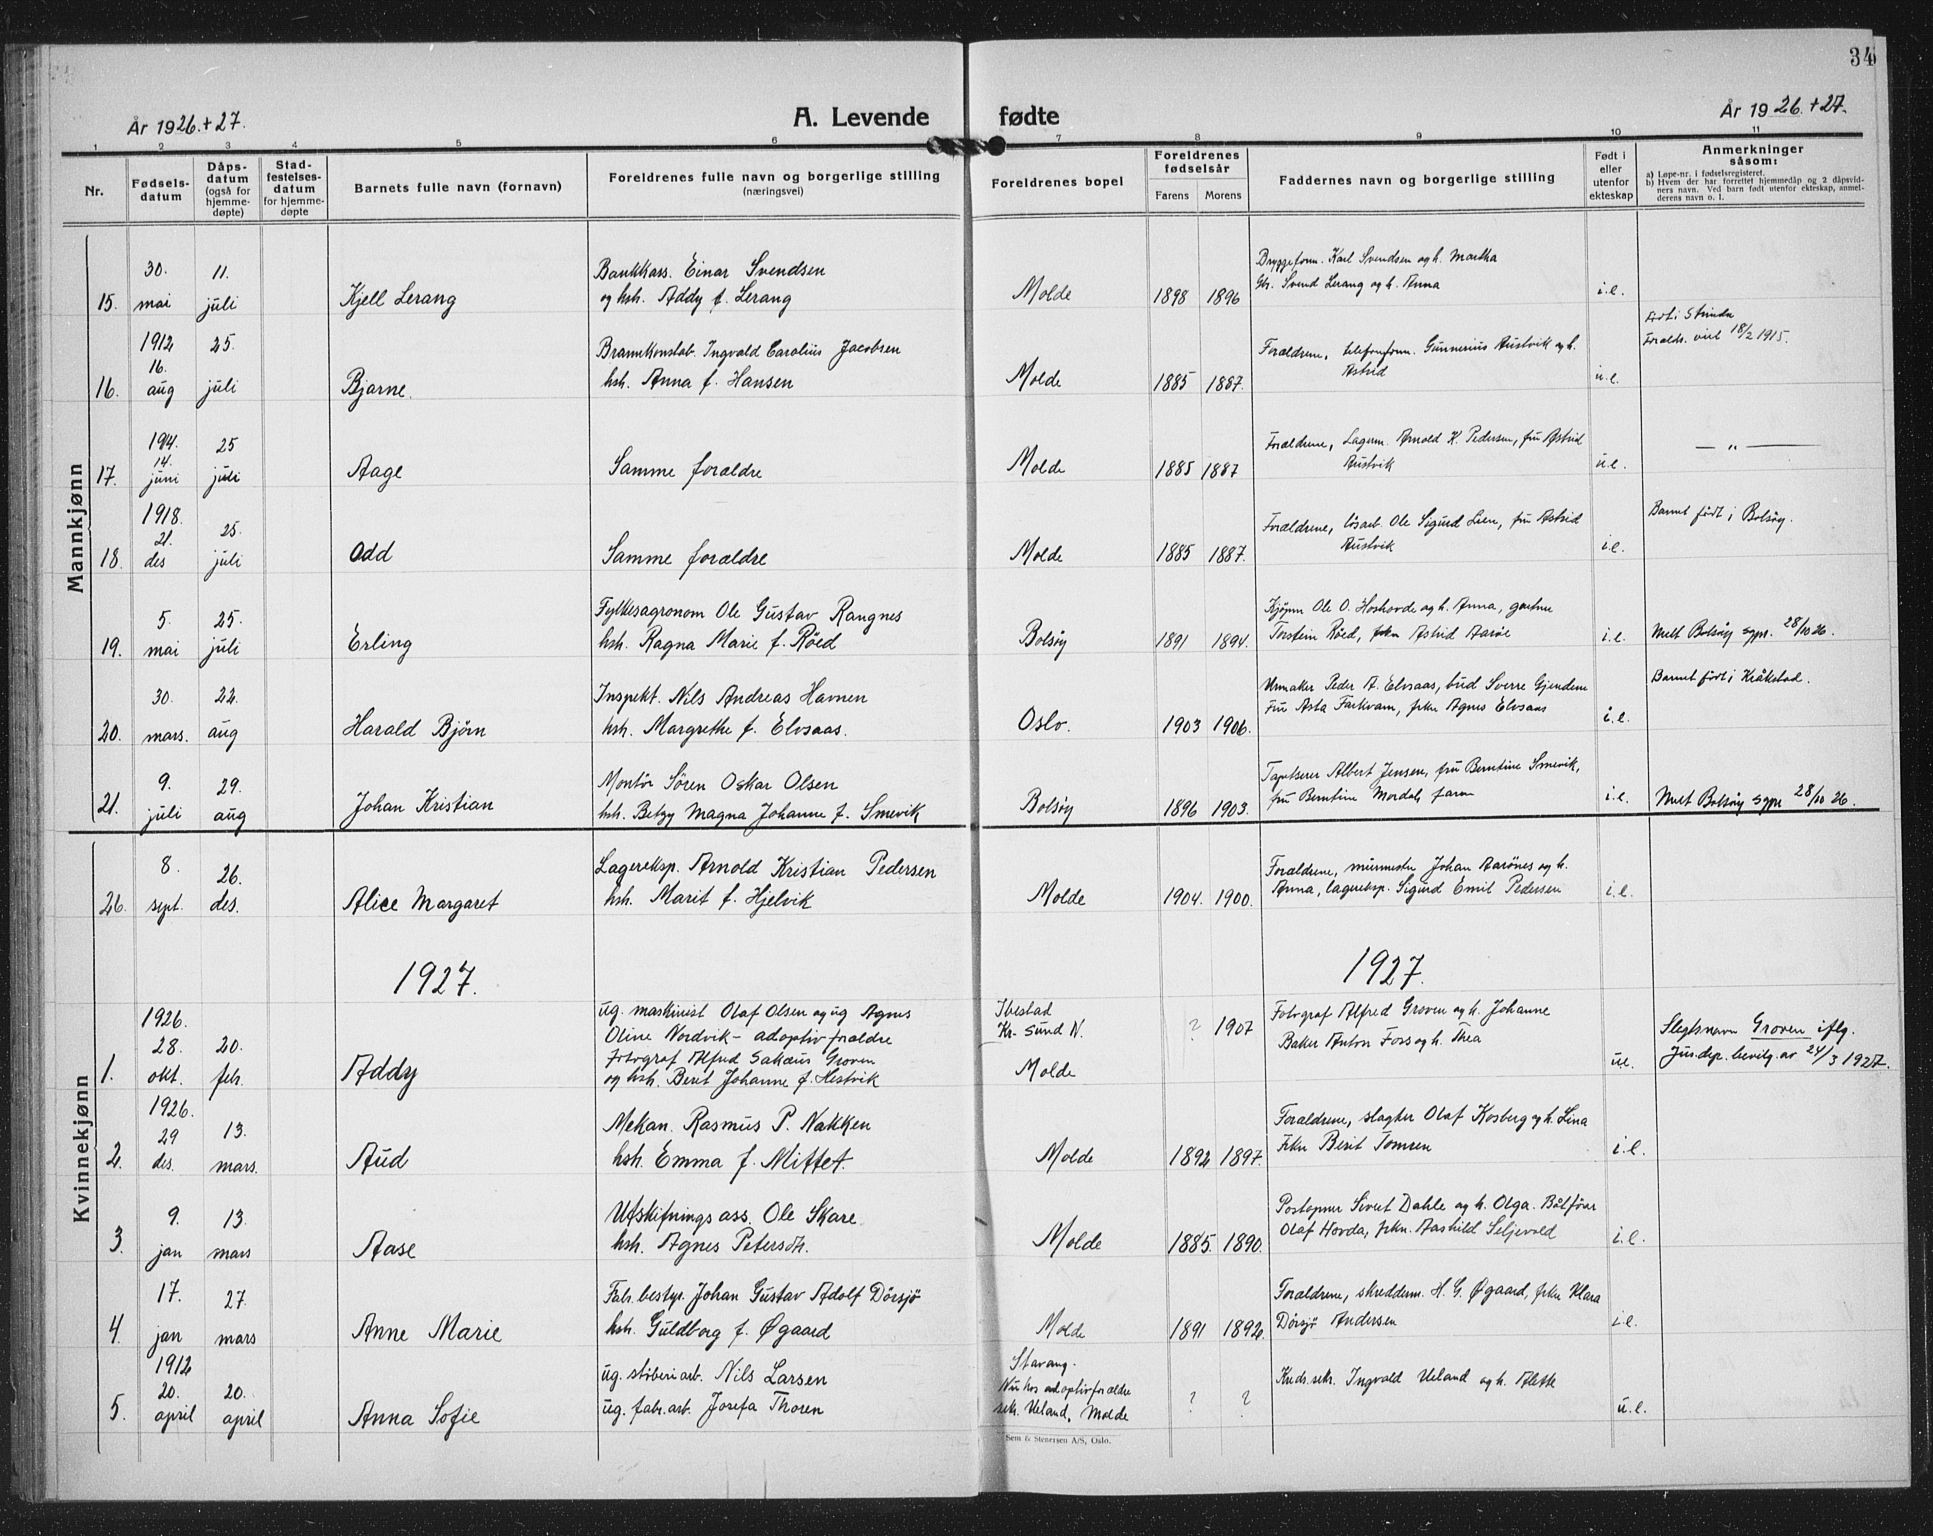 34
År 1926.+27.
A. Levende fødte
År 1926.+27.
1 2 3 4 5 6 7 8 9 10 11
Nr.
Fødsels-
datum
Dåps-
datum
(også for
hjemme-
døpte)
Stad-
festelses-
datum
for hjemme-
døpte
Barnets fulle navn (fornavn)
Foreldrenes fulle navn og borgerlige stilling
(næringsvei)
Foreldrenes bopel
Foreldrenes
fødselsår
Farens Morens
Faddernes navn og borgerlige stilling
Født i
eller
utenfor
ekteskap
Anmerkninger
såsom:
a) Løpe-nr. i fødselsregisteret.
b) Hvem der har forrettet hjemmedåp og 2 dåpsvid-
ners navn. Ved barn født utenfor ekteskap, anmel-
derens navn o. l.
Mannkjønn
15. 30. mai 11. juli Kjell Lerang
Bankkass. Einar Svendsen
og hsh. Addy f. Lerang
Molde 1898 1896
Bryggeform. Karl Svendsen og h. Martha
Gh. Svend Lerang og h. Anna
i.e.
16. 1912 16. aug 25. juli Bjarne.
Brannkonstab. Ingvald Carolius Jacobsen
hsh. Anna f. Hansen
Molde 1885 1887.
Forældrene, telefonform. Gunnerius Austvik og h.
Astrid
u.e.
Født i Strinda
Foreldr. viet 18/2 1915.
17. 1914. 14. juni 25 juli Aage
Samme forældre
Molde 1885 1887
Forældrene, Lagerm. Arnold K. Pedersen, fru Astrid
Austvik
u.e.
— " —
18. 1918. 21. des 25. juli Odd
Samme forældre
Molde 1885 1887.
Forældrene, løsarb. Ole Sigurd Lien, fru Astrid
Austvik
i.e.
Barnet født i Bolsøy.
19. 5. mai 25. juli Erling
Fylkesagronom Ole Gustav Rangnes
hsh. Ragna Marie f. Røed
Bolsøy 1891 1894.
Kjøpm Ole O. Hoshovde og h. Anna, gartner
Torstein Røed, frkn Astrid Aarøe
i.e.
Melt Bolsøy sgpr. 28/10 26.
20. 30. mars. 22. aug Harald Bjørn
Inspekt. Nils Andreas Havnen
hsh. Margrethe f. Elvsaas.
Oslo. 1903 1906.
Urmaker Peder A. Elvsaas, bud Sverre Gjendem
Fru Asta Farkvam, frkn Agnes Elvsaas
i.e.
Barnet født i Kråkstad.
21. 9. juli 29. aug Johan Kristian
Montør Søren Oskar Olsen
hsh. Betzy Magna Johanne f. Smevik
Bolsøy 1896 1903.
Tapetserer Albert Jensen, fru Berntine Smevik,
fru Berntine Mordal,
i.e.
Melt Bolsøy sgpr 28/10 26.
Kvinnekjønn
26. 8. sept. 26. des. Alice Margaret
Lagereksp. Arnold Kristian Pedersen
hsh. Marit f. Hjelvik
Molde 1904. 1900.
Forældrene, murmester Johan Aarønes og h.
Anna, lagereksp. Sigurd Emil Pedersen
i.e.
1927. 1927.
1. 1926. 28. okt. 20. febr. Addy
ug. maskinist Olaf Olsen og ug Agnes
Oline Nordvik – adoptivforældre
Fotograf Alfred Sakæus Groven
og hsh. Berit Johanne f. Hestvik
Ibestad
Kr-sund N.
Molde
? 1907
Fotograf Alfred Groven og h. Johanne
Baker Anton Foss og h. Thea
u.e.
Slegtsnavn Groven iflg.
Jus.dep. bevilg. av 24/3 1927.
2. 1926. 29 des. 13. mars. Aud
Mekan. Rasmus P. Nakken
hsh. Emma f. Mittet.
Molde 1892 1897.
Forældrene, slagter Olaf Kosberg og h. Lina
Frkn Berit Tomren
i.e.
3. 9. jan 13. mars Aase
Utskiftningsass. Ole Skare
hsh. Agnes Petersdtr.
Molde 1885. 1890.
Postopner Sivert Dahle og h. Olga. Båtfører
Olaf Hovda, frkn. Aashild Seljevold
i.e.
4. 17. jan 27. mars Anne Marie
Fabr.bestyr. Johan Gustav Adolf Dørsjø
hsh. Guldborg f. Øgaard
Molde 1891 1892.
Forældrene, skredderm. H. G. Øgaard, frkn Klara
Dørsjø Andersen
i.e.
5. 1912 20. april 20. april Anna Sofie
ug. støberiarb. Nils Larsen
ug. fabr.arb. Josefa Thoren
Stavang.
Nu hos adoptivforældre
sekr. Ueland, Molde
? ?
Kreds.sekr. Ingvald Ueland og h. Alette
u.e.
Sem & Stenersen A/S, Oslo.